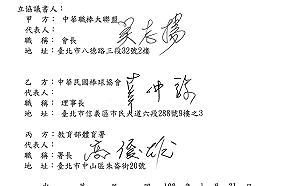 立協議書人：
甲 方：中華職棒大聯盟
代表人：吳志揚
職 稱：會長
地 址：臺北市八德路三段32號2樓
乙 方：中華民國棒球協會
代表人：辜仲諒
職 稱：理事長
地 址：臺北市信義區市民大道六段288號9樓之3
丙 方：教育部體育署
代表人：高俊雄
職 稱：署長
地 址：臺北市中山區朱崙街20號